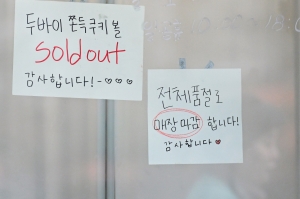 두바이 쫀득쿠키 볼
sold out
감사합니다!~♡♡♡
전체품절로
매장마감 합니다!
감사합니다♥